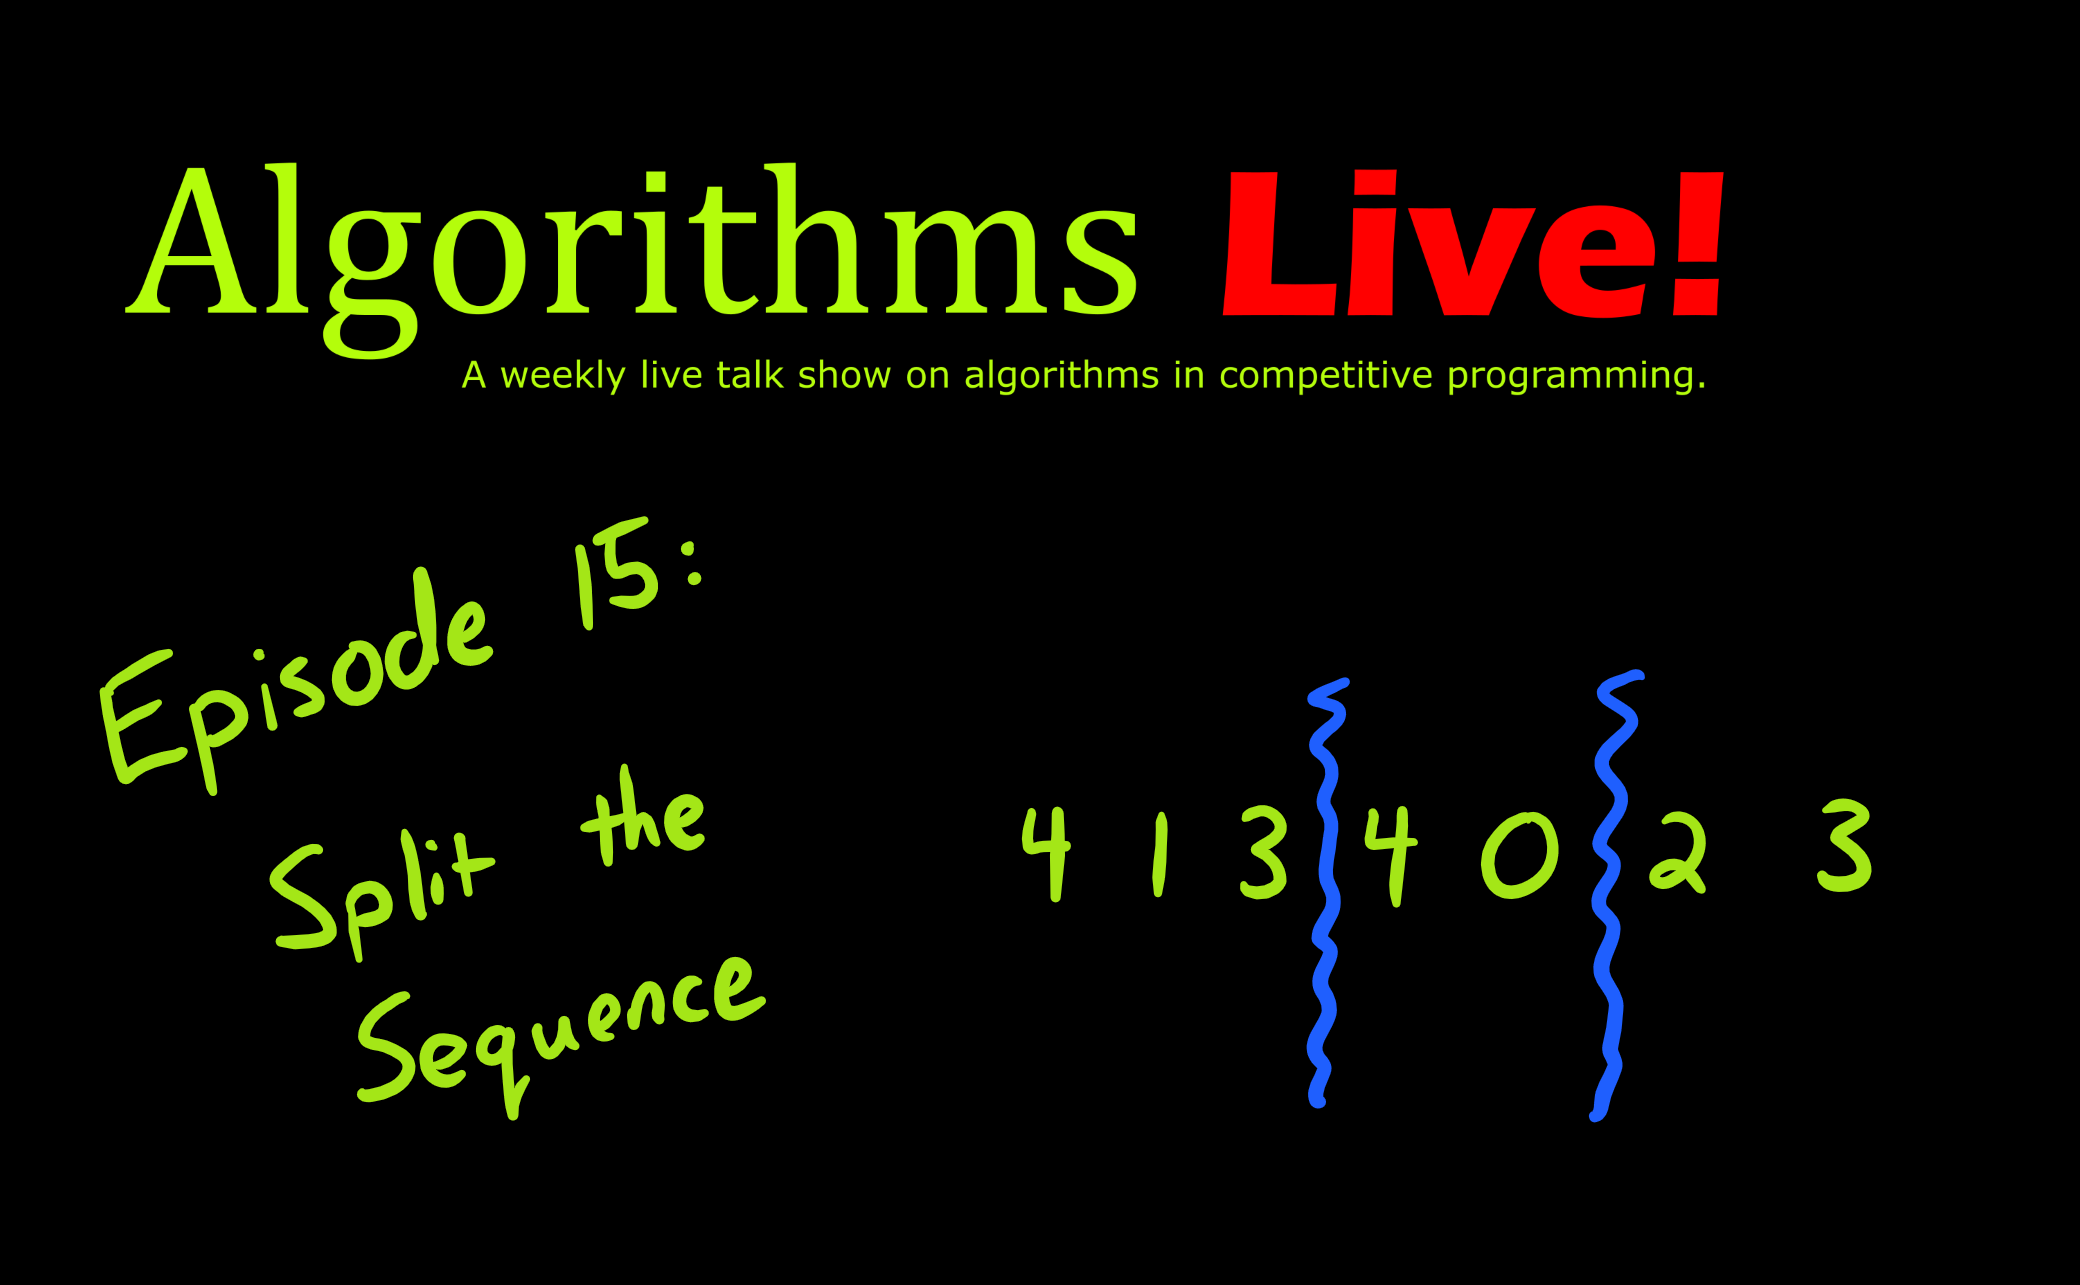 Algorithms Live!
A weekly live talk show on algorithms in competitive programming.
Episode 15:
Split the
Sequence
4 1 3 4 0 2 3